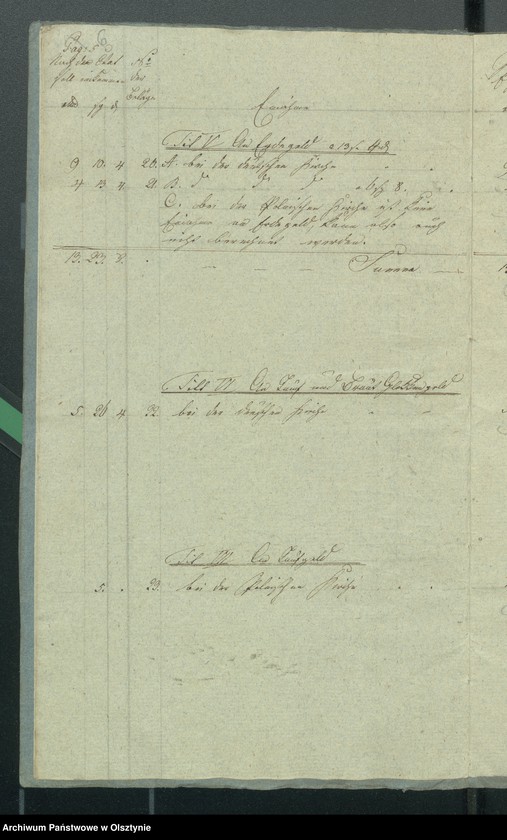 Pag: 5
Nach dem Etat No
soll einkommen der
sg d Beläge
Einnahme
Tit V. An Erdegeld
9 10. 4 20. A. bei der deutschen Kirche
4 13 4. 21. B.
C. bei der Polnischen Kirche ist keine
Einnahme an Erdegeld, kann also auch
nicht berechnet werden.
13. 23. 8. Summa
Titl VI An Tauf und Braut Glockengeld
5. 26 4 22. bei der deutschen Kirche
Tit VII An Taufgeld
5. 23. bei der Polnischen Kirche
Archiwum Państwowe w Olsztynie